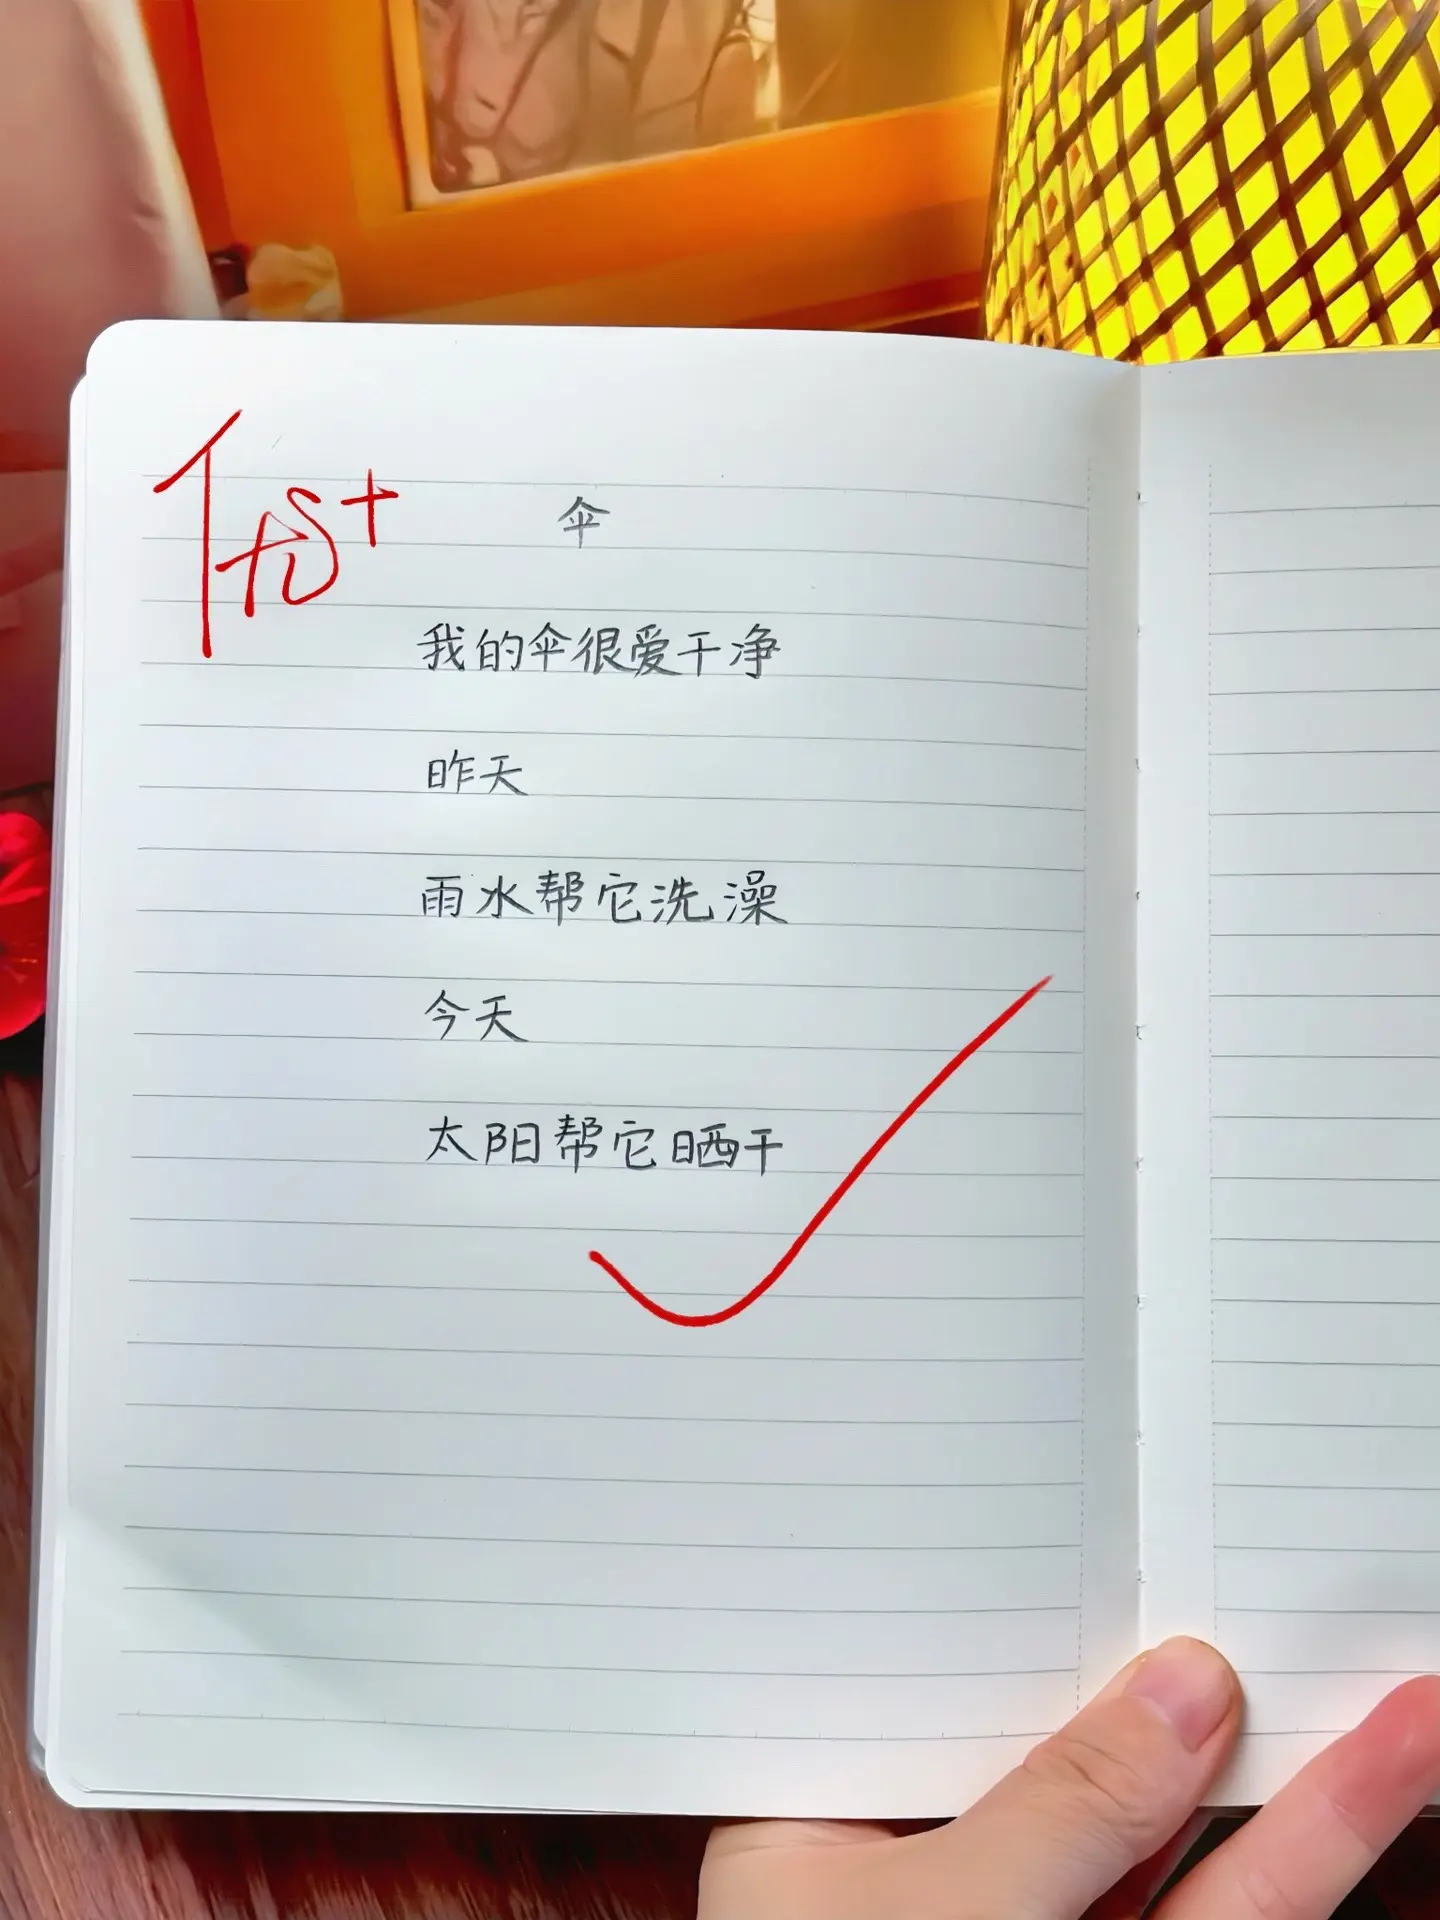 优+
伞
我的伞很爱干净
昨天
雨水帮它洗澡
今天
太阳帮它晒干